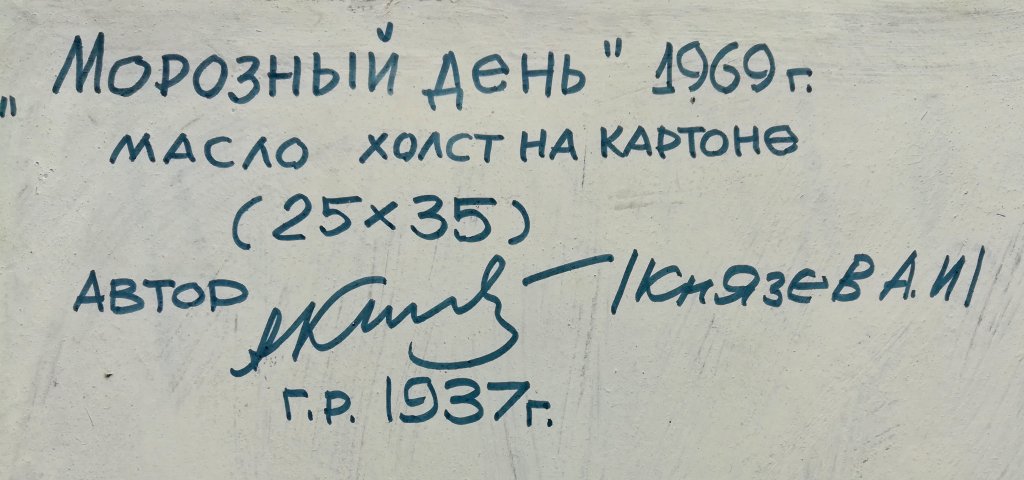 "Морозный день" 1969 г.
масло холст на картоне
(25×35)
Автор /Князев А.И/
г.р. 1937 г.